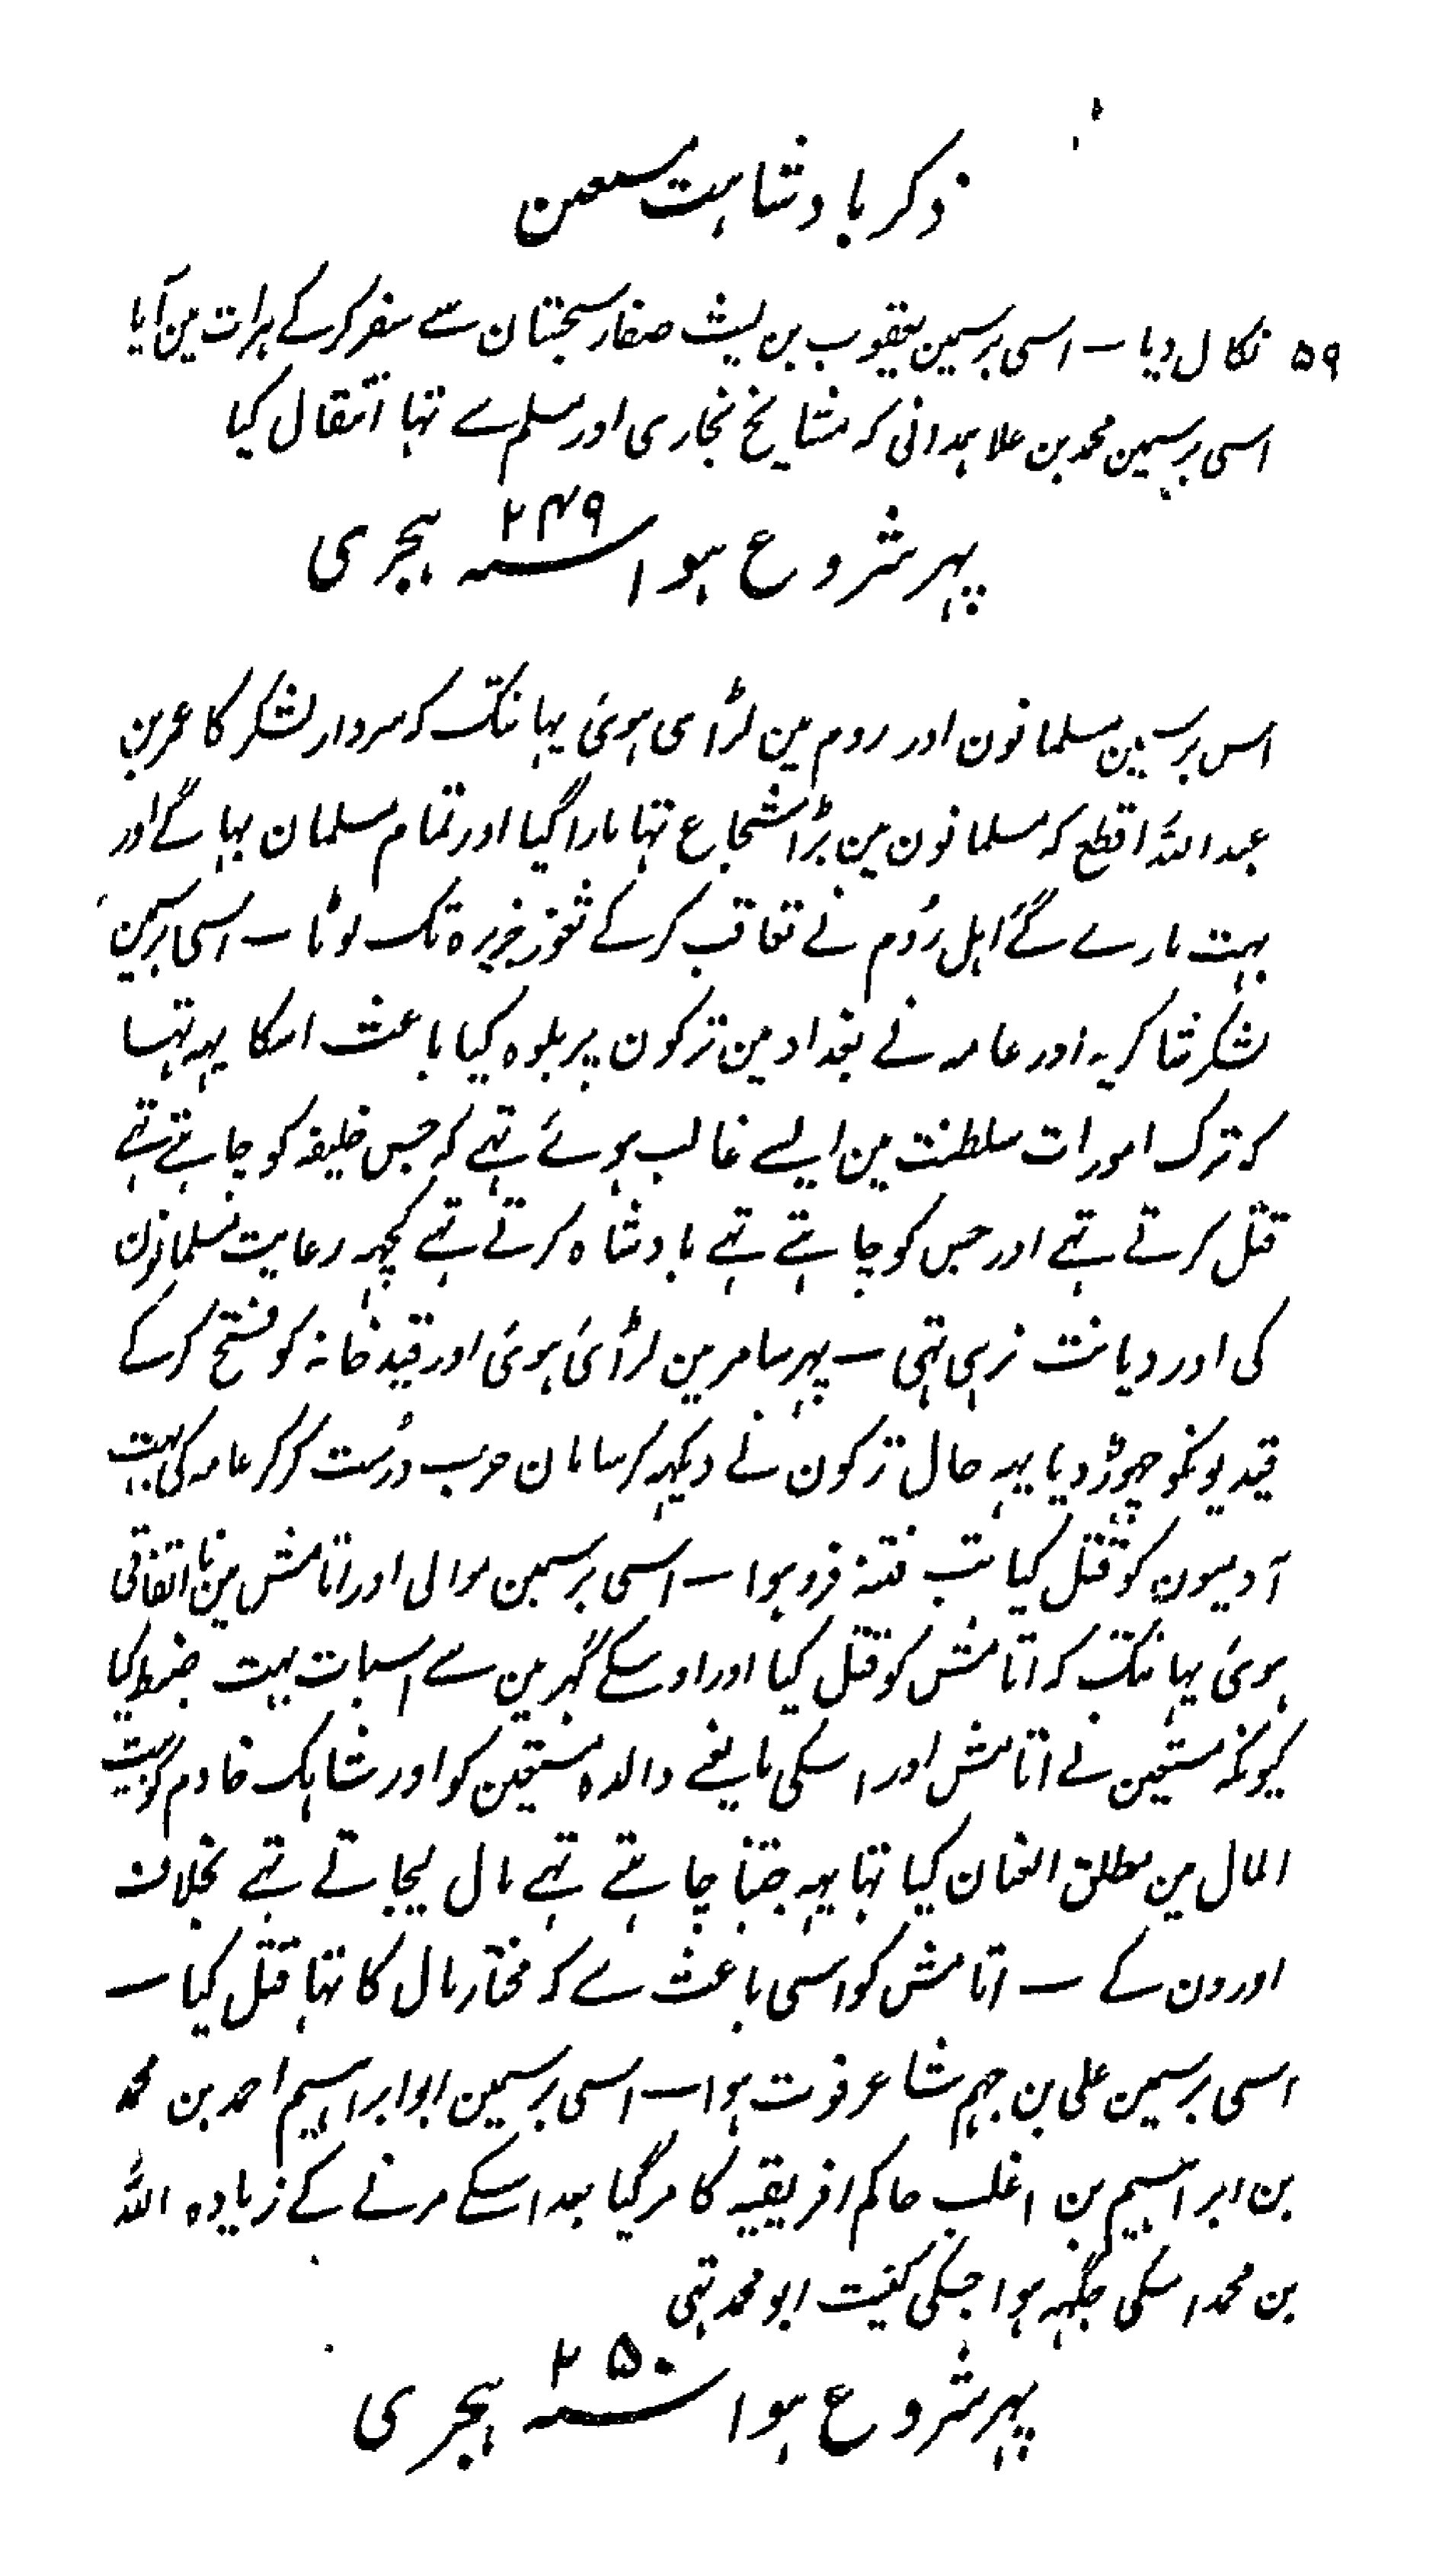 ذکر بادشاہت مستعین
۵۹ نکال دیا ۔ اسی برسمین یعقوب بن لیث صفار سجستان سے سفر کرکے ہرات مین آیا
اسی برسمین محمد بن علا ہمدانی کہ مشایخ بخاری اور مسلم سے تہا انتقال کیا
پہر شروع ہوا سنہ ۲۴۹ ہجری
اس برسمین مسلمانون اور روم مین لڑاءی ہوئی یہانتک کہ سردار لشکر کا عمر بن
عبد اللہ اقطع کہ مسلمانون مین بڑا شجاع تہا مارا گیا اور تمام مسلمان بہاگے اور
بہت مارے گے اہل رُوم نے تعاقب کرکے ثغور جزیرہ تک لوٹا ۔ اسی برسمین
لشکر شاکریہ اور عامہ نے بغداد مین ترکون پر بلوہ کیا باعث اسکا یہہ تہا
کہ ترک امورات سلطنت مین ایسے غالب ہوئے تہے کہ جس خلیفہ کو چاہتے تہے
قتل کرتے تہے اور جس کو چاہتے تہے بادشاہ کرتے تہے کچہہ رعایت مسلمانون
کی اور دیانت نرہی تہی ۔ پہر سامر مین لڑائی ہوئی اور قید خانہ کو فتح کرکے
قیدیونکو چہوڑ دیا یہہ حال ترکون نے دیکہہ کر سامان حرب دُرست کرکر عامہ کی بہت
آدمیون کو قتل کیا تب فتنہ فرو ہوا ۔ اسی برسمین موالی اور اتامش مین نا اتفاقی
ہوئی یہانتک کہ اتامش کو قتل کیا اور اوسکے گہر مین سے اسبات بہت ضبط کیا
کیونکہ مستعین نے اتامش اور اسکی ما یعنے والدہ مستعین کو اور شاہک خادم کو بیت
المال مین مطلق العنان کیا تہا یہہ جتنا چاہتے تہے مال لیجاتے تہے بخلاف
اورون کے ۔ اتامش کو اسی باعث سے کہ مختار مال کا تہا قتل کیا ۔
اسی برسمین علی بن جہم شاعر فوت ہوا ۔ اسی برسمین ابو ابراہیم احمد بن محمد
بن ابراہیم بن اغلب حاکم افریقیہ کا مر گیا بعد اسکے مرنے کے زیادہ اللہ
بن محمد اسکی جگہہ ہوا جسکی کنیت ابو محمد تہی
پہر شروع ہوا سنہ ۲۵۰ ہجری